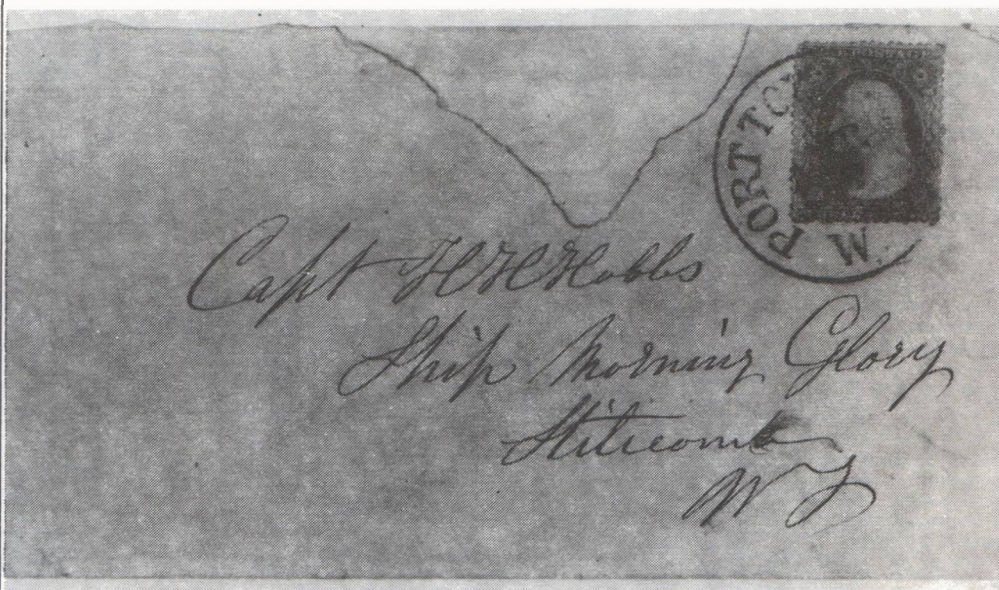 PORT TO
W.
Capt H H Hobbs
Ship Morning Glory
Stilicomb
W T